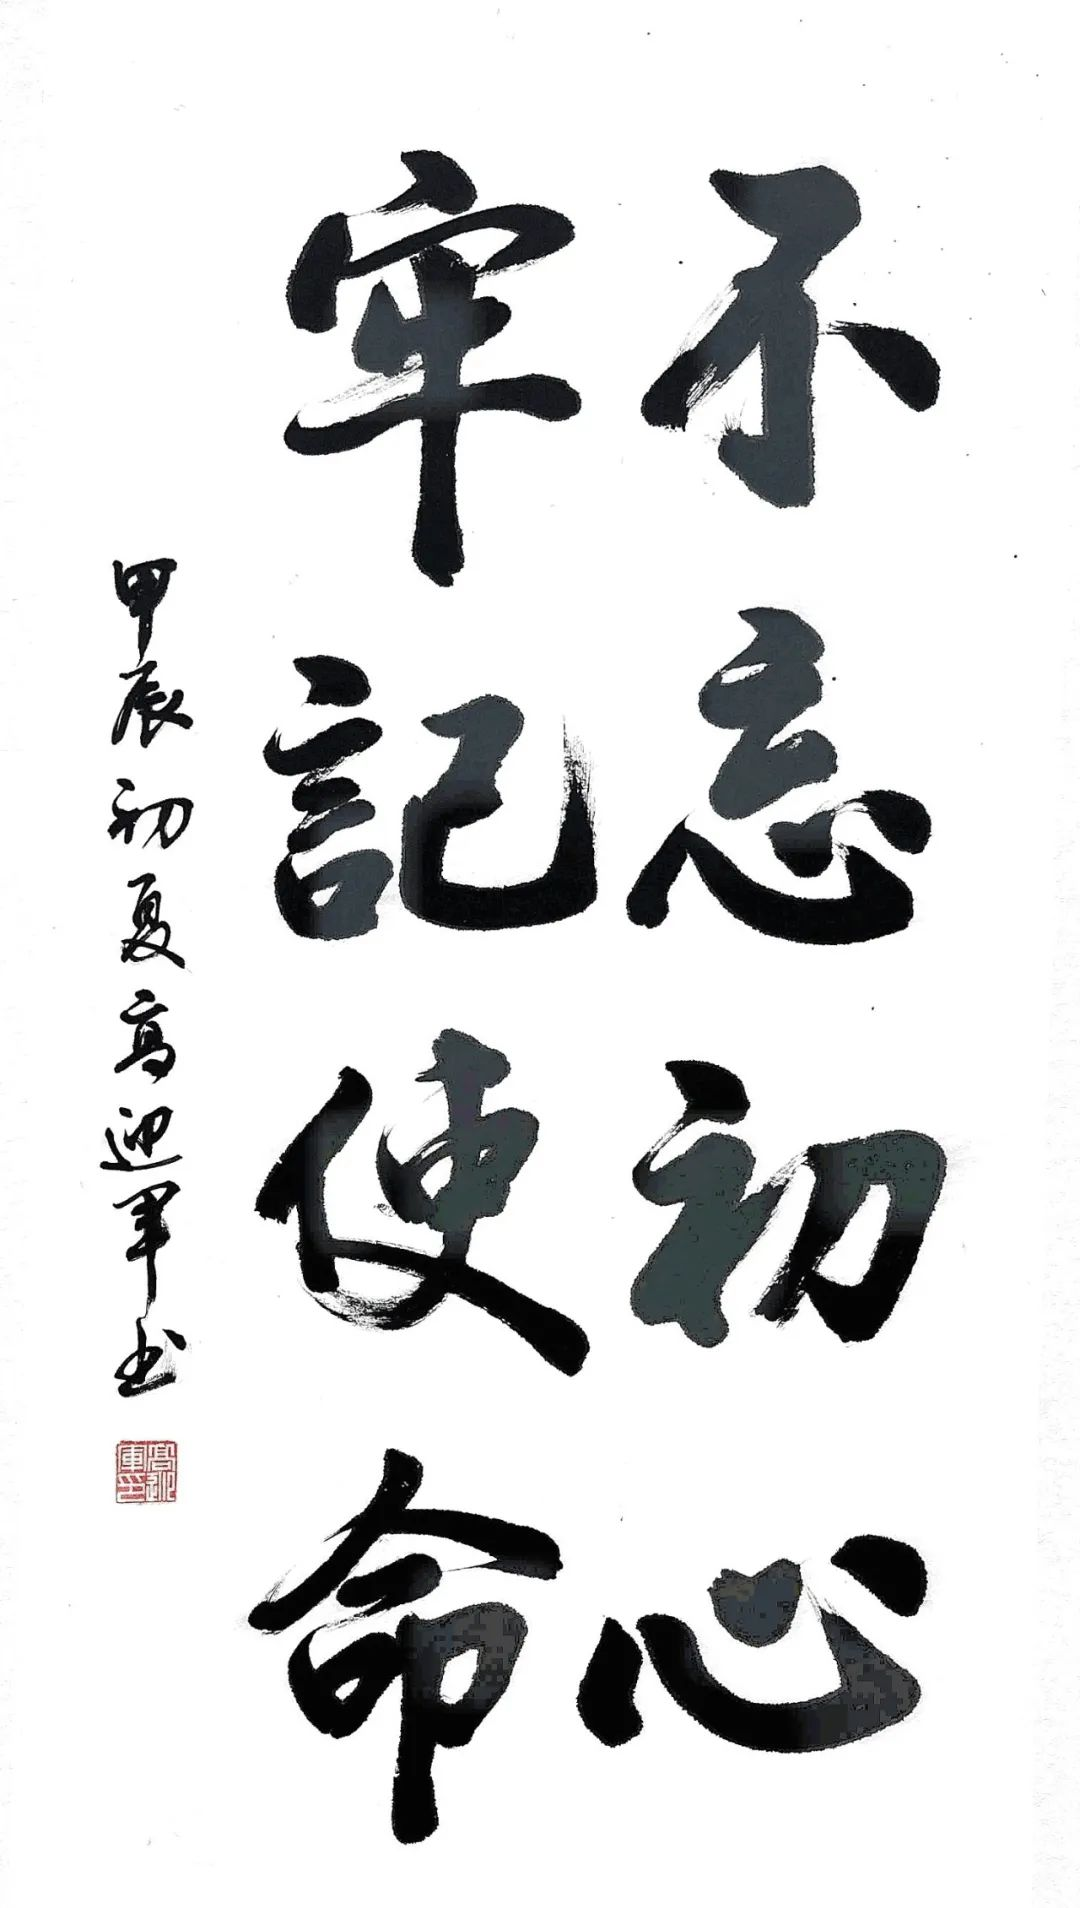 不忘初心
牢記使命
甲辰初夏高迎軍书
高迎軍印